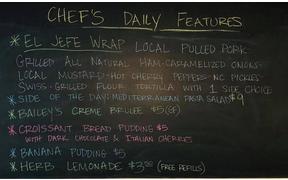 CHEF'S DAILY FEATURES
* EL JEFE WRAP LOCAL PULLED PORK-
GRILLED ALL NATURAL HAM-CARAMELIZED ONIONS-
LOCAL MUSTARD-HOT CHERRY PEPPERS-NC PICKLES-
SWISS-GRILLED FLOUR TORTILLA WITH 1 SIDE CHOICE
* SIDE OF THE DAY: MEDITERRANEAN PASTA SALAD $9
* BAILEY'S CREME BRULEE $5 (GF)
* CROISSANT BREAD PUDDING $5
WITH DARK CHOCOLATE & ITALIAN CHERRIES
* BANANA PUDDING $5
* HERB LEMONADE $3.00 (FREE REFILLS)